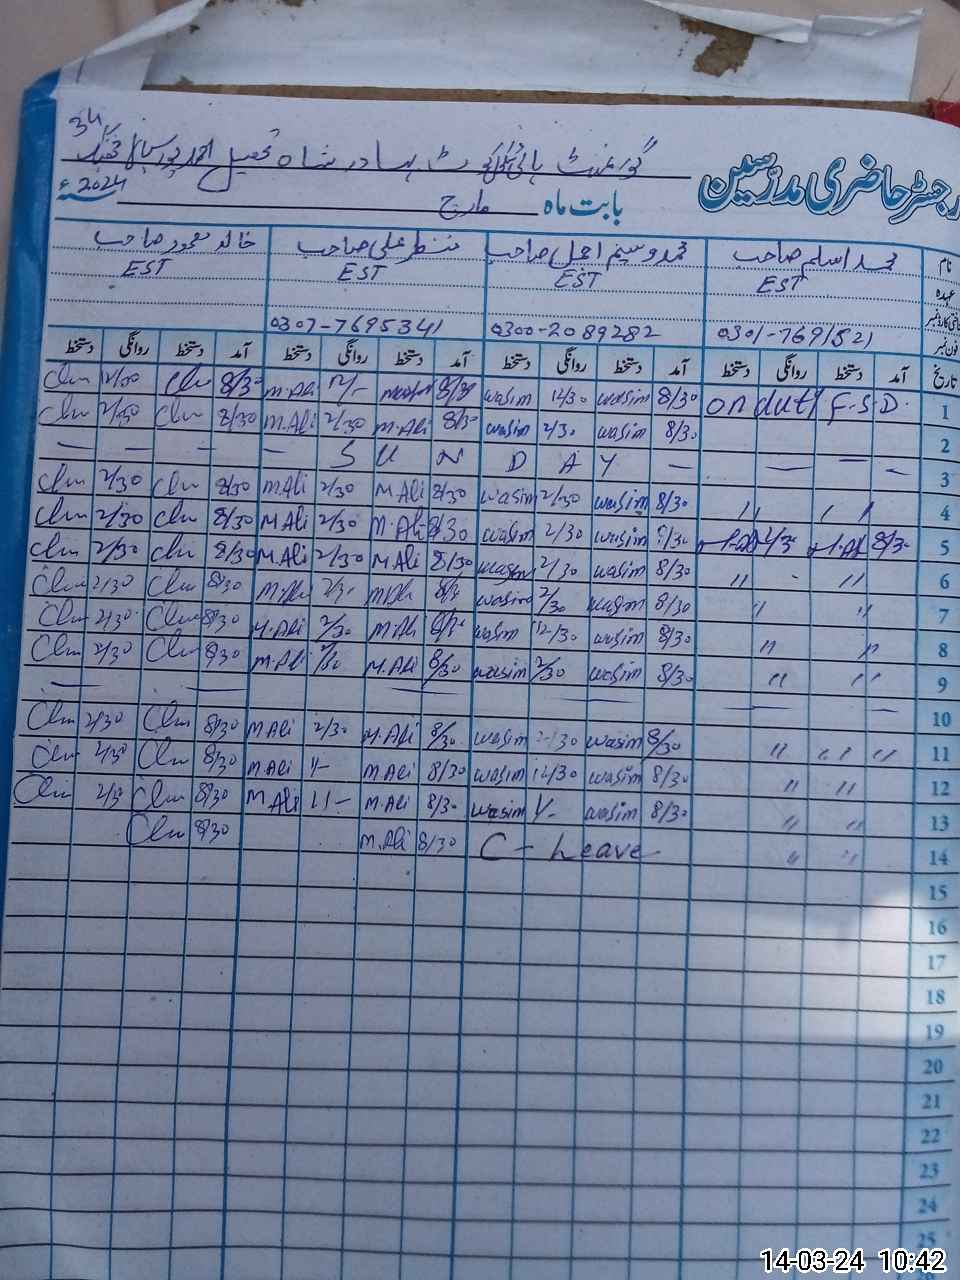 34
گورنمنٹ ہائی سکول کوٹ بہادر شاہ تحصیل احمد پور سیال جھنگ
رجسٹر حاضری مدرسین
بابت ماہ مارچ 2024ء
نام محمد اسلم صاحب محمد وسیم اجمل صاحب منظر علی صاحب خالد محمود صاحب
عہدہ EST EST EST EST
شناختی کارڈ نمبر
فون نمبر 0301-7691521 0300-2089282 0307-7695341
تاریخ آمد دستخط روانگی دستخط آمد دستخط روانگی دستخط آمد دستخط روانگی دستخط آمد دستخط روانگی دستخط
1 on duty F.S.D. 8/30 wasim 12/30 wasim 8/30 12/- M.Ali 8/30 12/30
2 8/30 wasim 2/30 wasim 8/30 M.Ali 2/30 M.Ali 8/30 2/30
3 — — — — S U N D A Y — — — —
4 " " 8/30 wasim 2/30 wasim 8/30 M Ali 2/30 M.Ali 8/30 2/30
5 8/30 2/30 8/30 wasim 2/30 wasim 8/30 M.Ali 2/30 M Ali 8/30 2/30
6 " " 8/30 wasim 2/30 wasim 8/30 M Ali 2/30 M.Ali 8/30 2/30
7 " " 8/30 wasim 2/30 wasim M.Ali 8/30 2/30
8 " " 8/30 wasim 12/30 wasim M.Ali 2/30 M.Ali 8/30 2/30
9 " " 8/30 wasim 2/30 wasim 8/30 M.Ali M.Ali 8/30 2/30
10 — — — — — — —
11 " " " 8/30 wasim 2/30 wasim 8/30 M.Ali 2/30 M Ali 8/30 2/30
12 " " 8/30 wasim 12/30 wasim 8/30 M Ali M Ali 8/30 2/30
13 " " 8/30 wasim wasim 8/30 M.Ali M.Ali 8/30
14 " " C - Leave 8/30 M.Ali 8/30
15
16
17
18
19
20
21
22
23
24
25
14-03-24 10:42